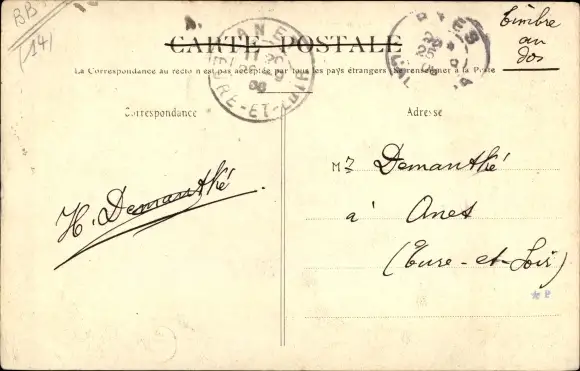 BB
(14)
Timbre
au
dos
CARTE POSTALE
La Correspondance au recto n'est pas acceptée par tous les pays étrangers (Se renseigner à la Poste
ANET
11
EURE-ET-LOIR
Correspondance
Adresse
H. Demanthé
Mr Demanthé
à Anet
(Eure-et-Loir)